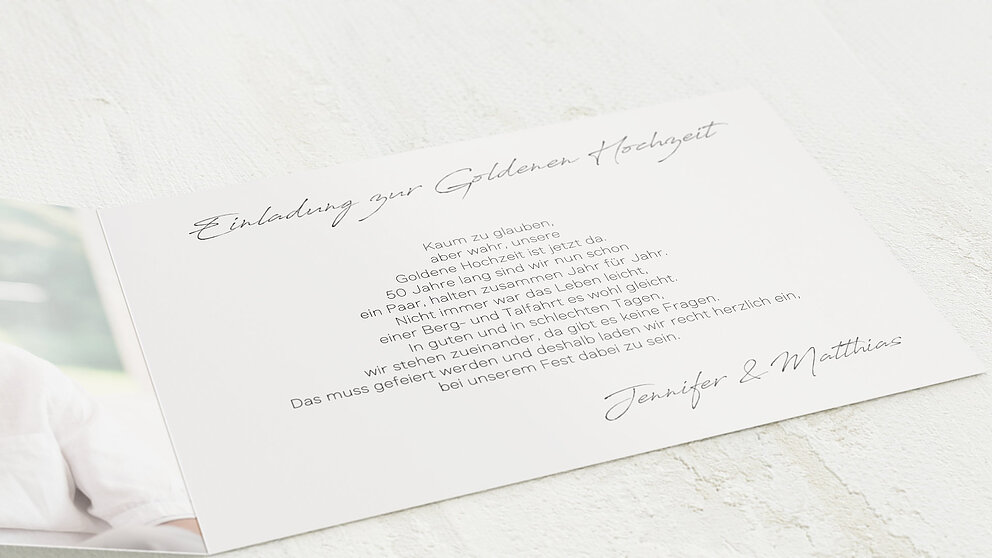 Einladung zur Goldenen Hochzeit
Kaum zu glauben,
aber wahr, unsere
Goldene Hochzeit ist jetzt da.
50 Jahre lang sind wir nun schon
ein Paar, halten zusammen Jahr für Jahr.
Nicht immer war das Leben leicht,
einer Berg- und Talfahrt es wohl gleicht.
In guten und in schlechten Tagen,
wir stehen zueinander, da gibt es keine Fragen.
Das muss gefeiert werden und deshalb laden wir recht herzlich ein,
bei unserem Fest dabei zu sein.
Jennifer & Matthias